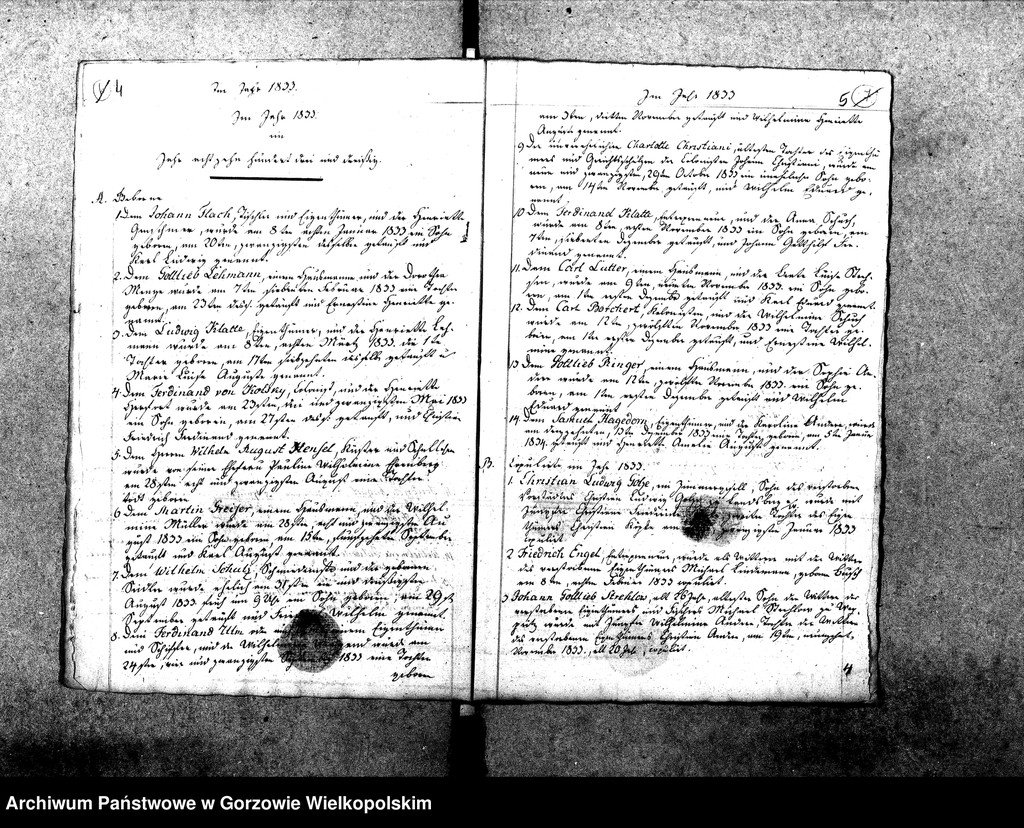 4
Im Jahr 1833.
Im Jahr 1833.
im
Jahr acht zehn hundert drei und dreißig.
A. Geborne
1. Dem Johann Flach, Tischler und Eigenthümer, und der Henriette
wurde am 8ten achten Januar 1833 ein Sohn
geboren, am 20ten, zwanzigsten desselben getauft und
Karl Ludwig genannt.
2. Dem Gottlieb Lehmann, einem Hausmanne und der Dorothea
Menze wurde am 7ten, siebenten Februar 1833 eine Tochter
geboren, am 23ten getauft und Ernestine Henriette ge-
nannt.
3. Dem Ludwig Klatte, Eigenthümer, und der Henriette Leh-
mann wurde am 8ten, achten März 1833 die 1te
Tochter geboren, am 17ten siebzehnten desselb. getauft u
Marie Luise Auguste genannt.
4. Dem Ferdinand von Kolsky, Colonist, und der Henriette
wurde am 23sten, drei und zwanzigsten Mai 1833
ein Sohn geboren, am 27sten getauft, und Christian
Friedrich Ferdinand genannt.
5. Dem Herrn Wilhelm August Hensel, Küster und Schullehrer
wurde von seiner Ehefrau Pauline Wilhelmine
am 28sten acht und zwanzigsten August eine Tochter
todt geboren.
6. Dem Martin Greiser, einem Hausmann, und der Wilhel-
mine Müller wurde am 28sten, acht und zwanzigsten Au-
gust 1833 ein Sohn geboren, am 15ten, fünfzehnten September
getauft und Karl August genannt.
7. Dem Wilhelm Schulz, und der gebornen
Seidler wurde ehelich am 31sten ein und dreißigsten
August 1833 früh um 9 Uhr ein Sohn geboren, am 29st
September getauft und Wilhelm genannt.
8. Dem Ferdinand Utm Eigenthümer
und Schiffer, und der Wilhelmine wurde am
24sten, vier und zwanzigsten 1833 eine Tochter
geboren
Im Jahr 1833
5
am 3ten, dritten November getauft und Wilhelmine Henriette
Auguste genannt.
9. Der unverehelichten Charlotte Christiani, ältesten Tochter des Eigenthü-
mers und Gerichtsschöffen des Colonisten Johann Christiani, wurde am
neun und zwanzigsten, 29sten October 1833 ein unehelicher Sohn gebo-
ren, am 14ten November getauft, und Wilhelm Eduard ge-
nannt.
10. Dem Ferdinand Klatte, Entrepreneur, und der Anna Schütz,
wurde am 8ten achten November 1833 ein Sohn geboren, am
7ten, siebenten Dezember getauft, und Johann Gotthilf Fer-
dinand genannt.
11. Dem Carl Lutter, einem Hausmann, und der Beate Luise
wurde am 9ten, neunten November 1833 ein Sohn gebo-
ren, am 1ten ersten Dezember getauft und Karl Eduard genannt.
12. Dem Carl Borchert, Kolonisten, und der Wilhelmine Schütz
wurde am 12ten, zwölften November 1833 eine Tochter ge-
boren, am 1ten ersten Dezember getauft, und Ernestine Wilhel-
mine genannt.
13. Dem Gottlieb Ringer, einem Hausmann, und der Sophie An-
ders wurde am 12ten, zwölften November 1833 ein Sohn ge-
boren, am 1ten ersten Dezember getauft und Wilhelm
Eduard genannt.
14. Dem Samuel Hagedorn, Eigenthümer, und der Karoline Anders, wurde
am dreizehnten, 13ten Dezember 1833 eine Tochter geboren, am 5ten Januar
1834 getauft und Henriette Amelie Auguste genannt.
B. Copulirte im Jahr 1833.
1. Christian Ludwig Golze, ein Zimmergesell, Sohn des verstorbenen
Christian Ludwig Golze zu Landsberg, wurde mit
Jungfer Christiane Friederike zweiten Tochter des Eigen-
thümers Christian am zwanzigsten Januar 1833
copulirt.
2. Friedrich Engel, Entrepreneur, wurde als Wittwer mit der Wittwe
des verstorbenen Eigenthümers Michael Lindemann, geborne
am 8ten, achten Februar 1833 copulirt.
3. Johann Gottlieb Strehlow, alt 26 Jahr, ältester Sohn der Wittwe des
verstorbenen Eigenthümers und Fischers Michael Strehlow zu
wurde mit Jungfer Wilhelmine Anders, Tochter der Wittwe
des verstorbenen Eigenthümers Christian Anders, am 19ten, neunzehnt.
November 1833, alt 20 Jahr, copulirt.
4
Archiwum Państwowe w Gorzowie Wielkopolskim